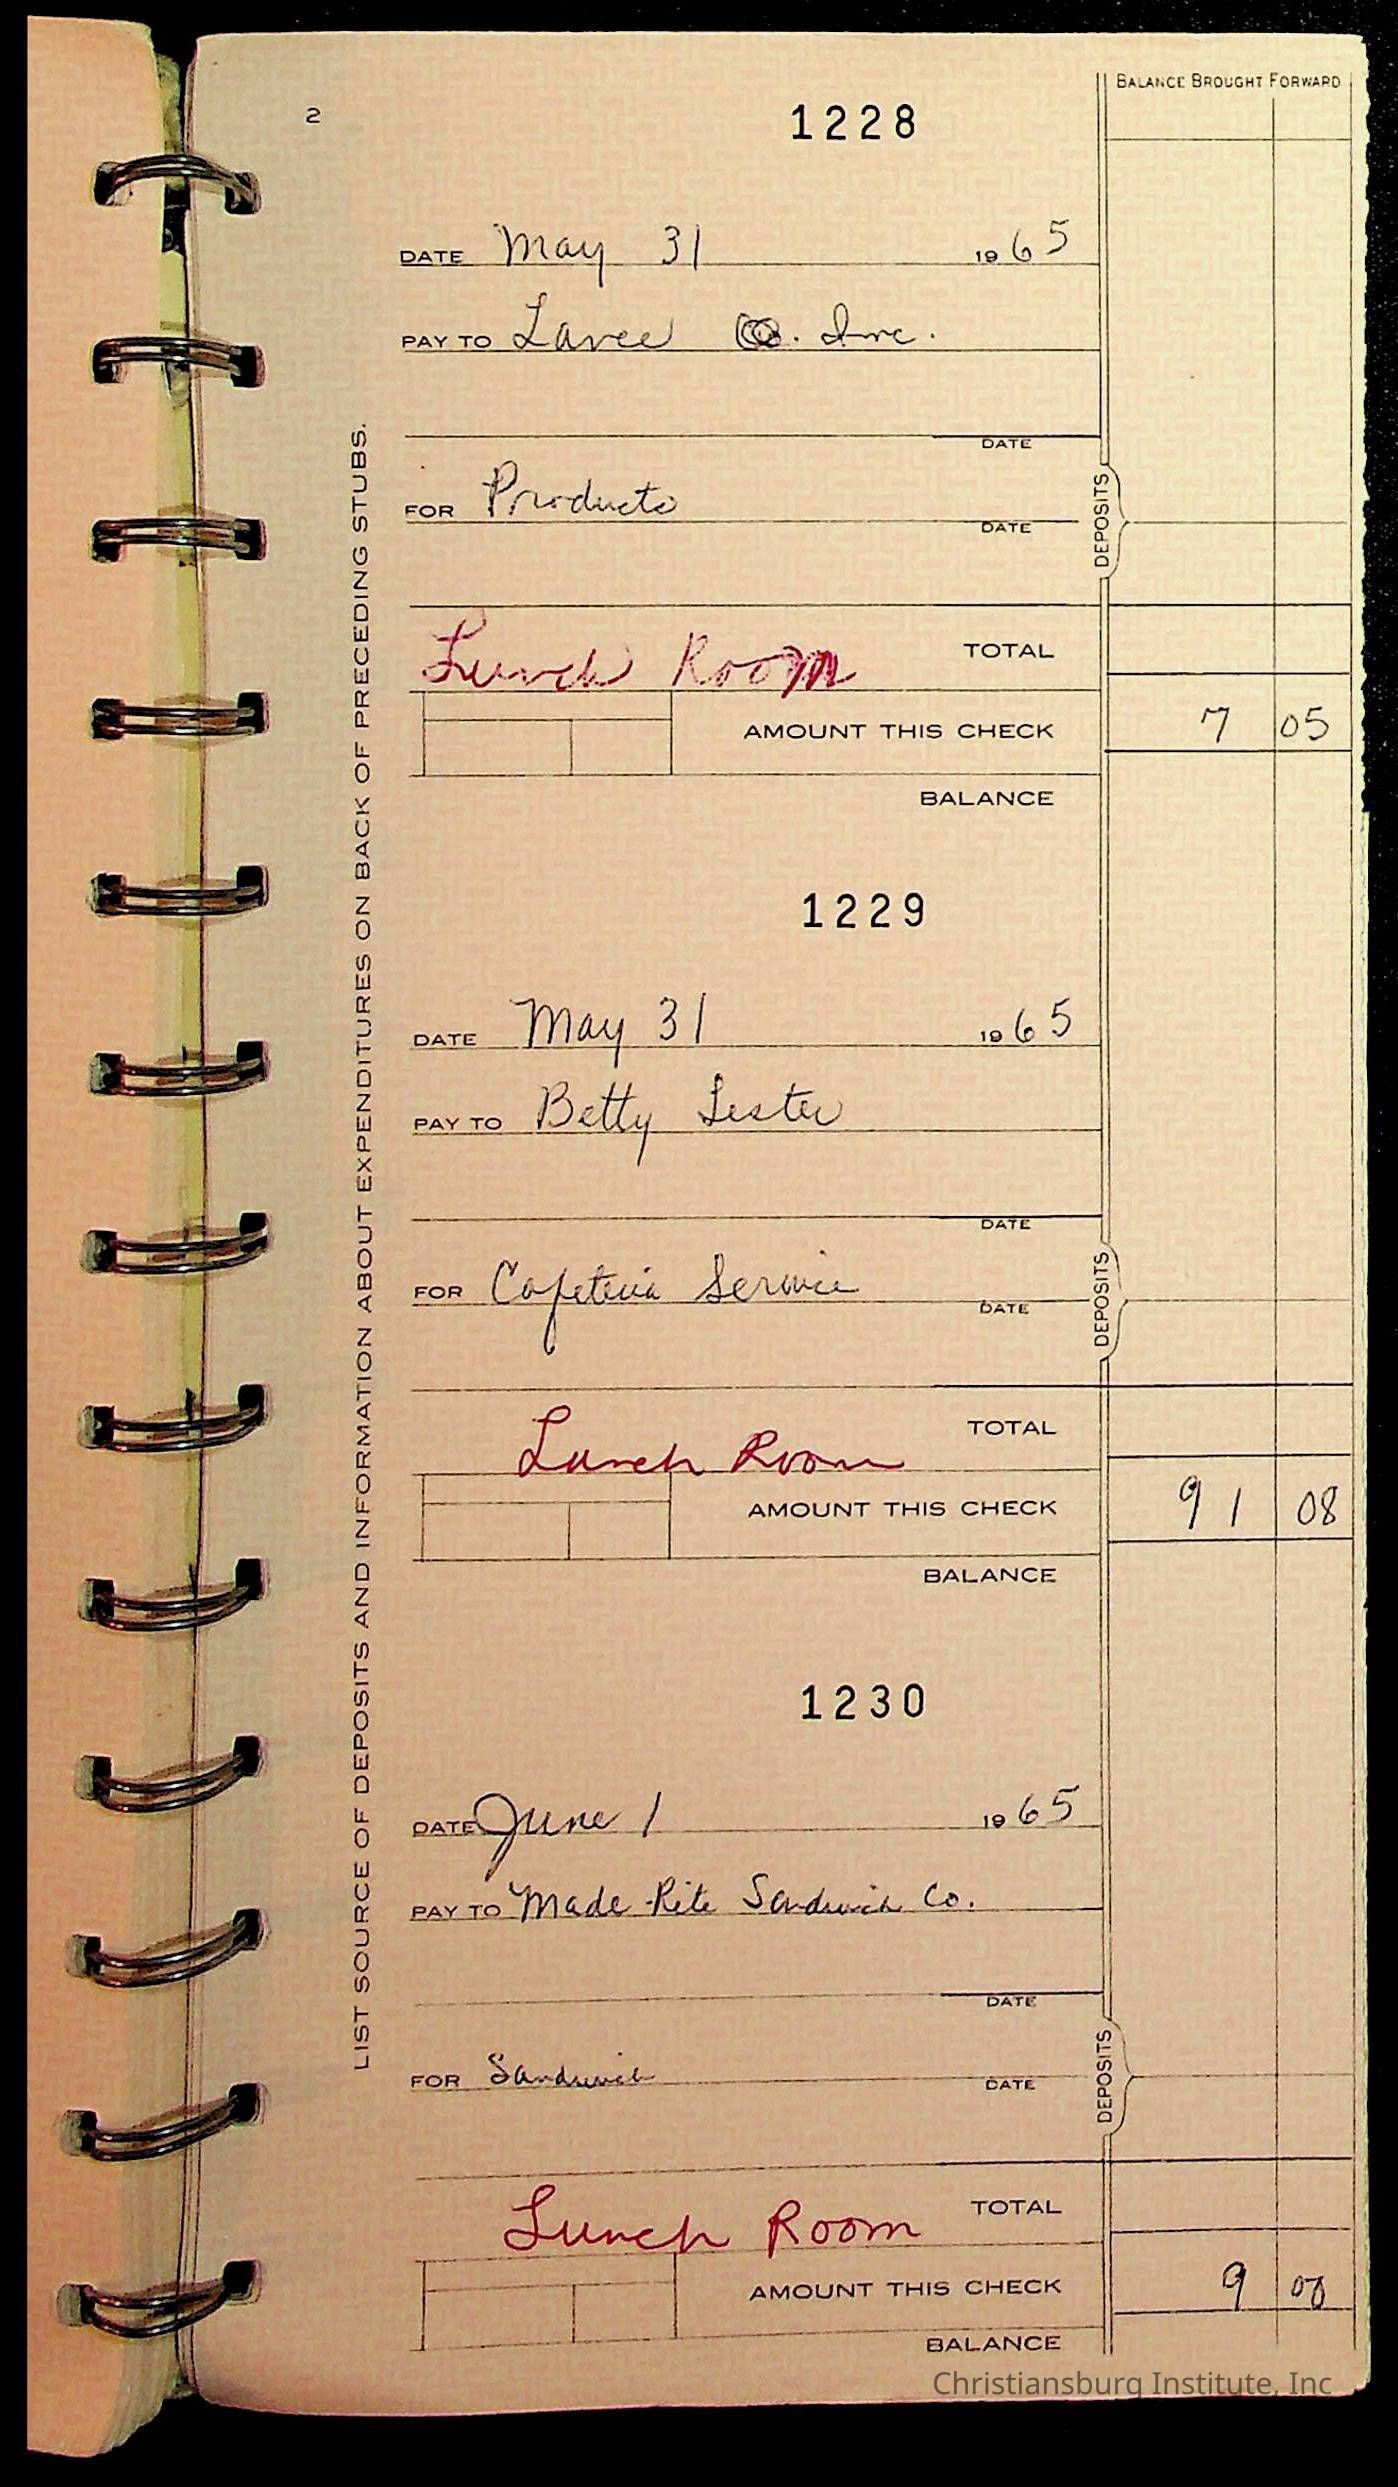 2
BALANCE BROUGHT FORWARD
1228
DATE May 31 1965
PAY TO Lance Co. Inc.
DATE
FOR Products
DATE
DEPOSITS
Lunch Room TOTAL
AMOUNT THIS CHECK 7 05
BALANCE
LIST SOURCE OF DEPOSITS AND INFORMATION ABOUT EXPENDITURES ON BACK OF PRECEDING STUBS.
1229
DATE May 31 1965
PAY TO Betty Lester
DATE
FOR Cafeteria Service
DATE
DEPOSITS
Lunch Room TOTAL
AMOUNT THIS CHECK 91 08
BALANCE
1230
DATE June 1 1965
PAY TO Made-Rite Sandwich Co.
DATE
FOR Sandwich
DATE
DEPOSITS
Lunch Room TOTAL
AMOUNT THIS CHECK 9 00
BALANCE
Christiansburg Institute, Inc